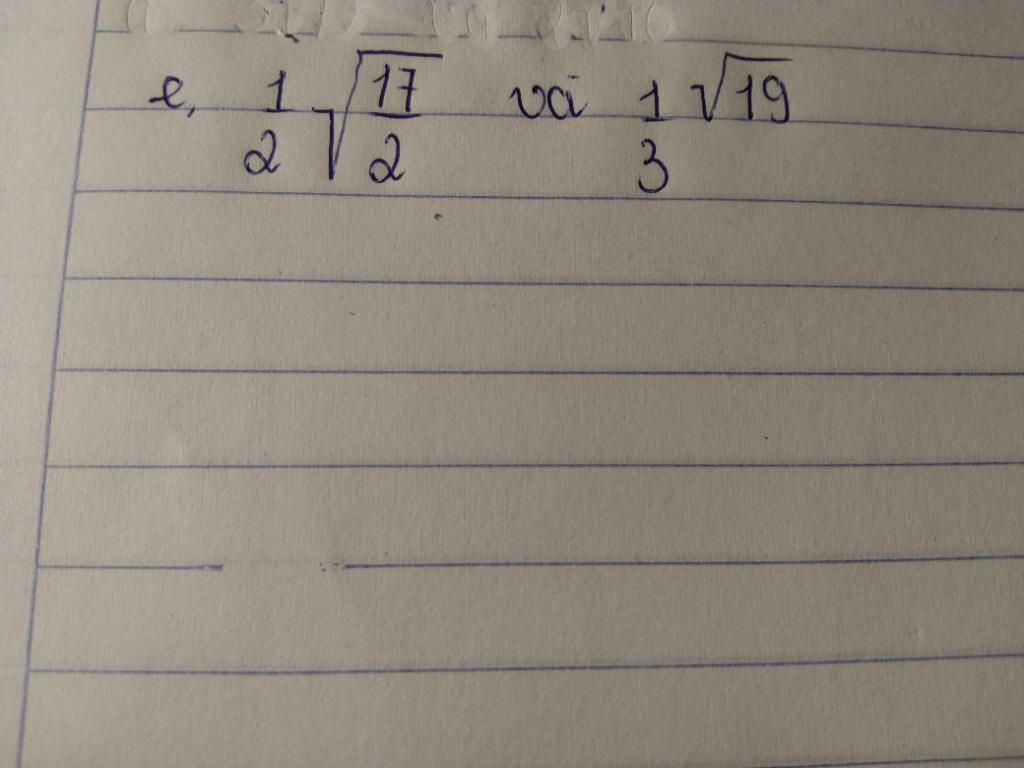 e, 1/2 √(17/2) và 1/3 √19